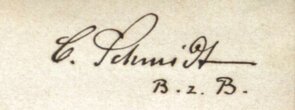 C. Schmidt
B. z. B.